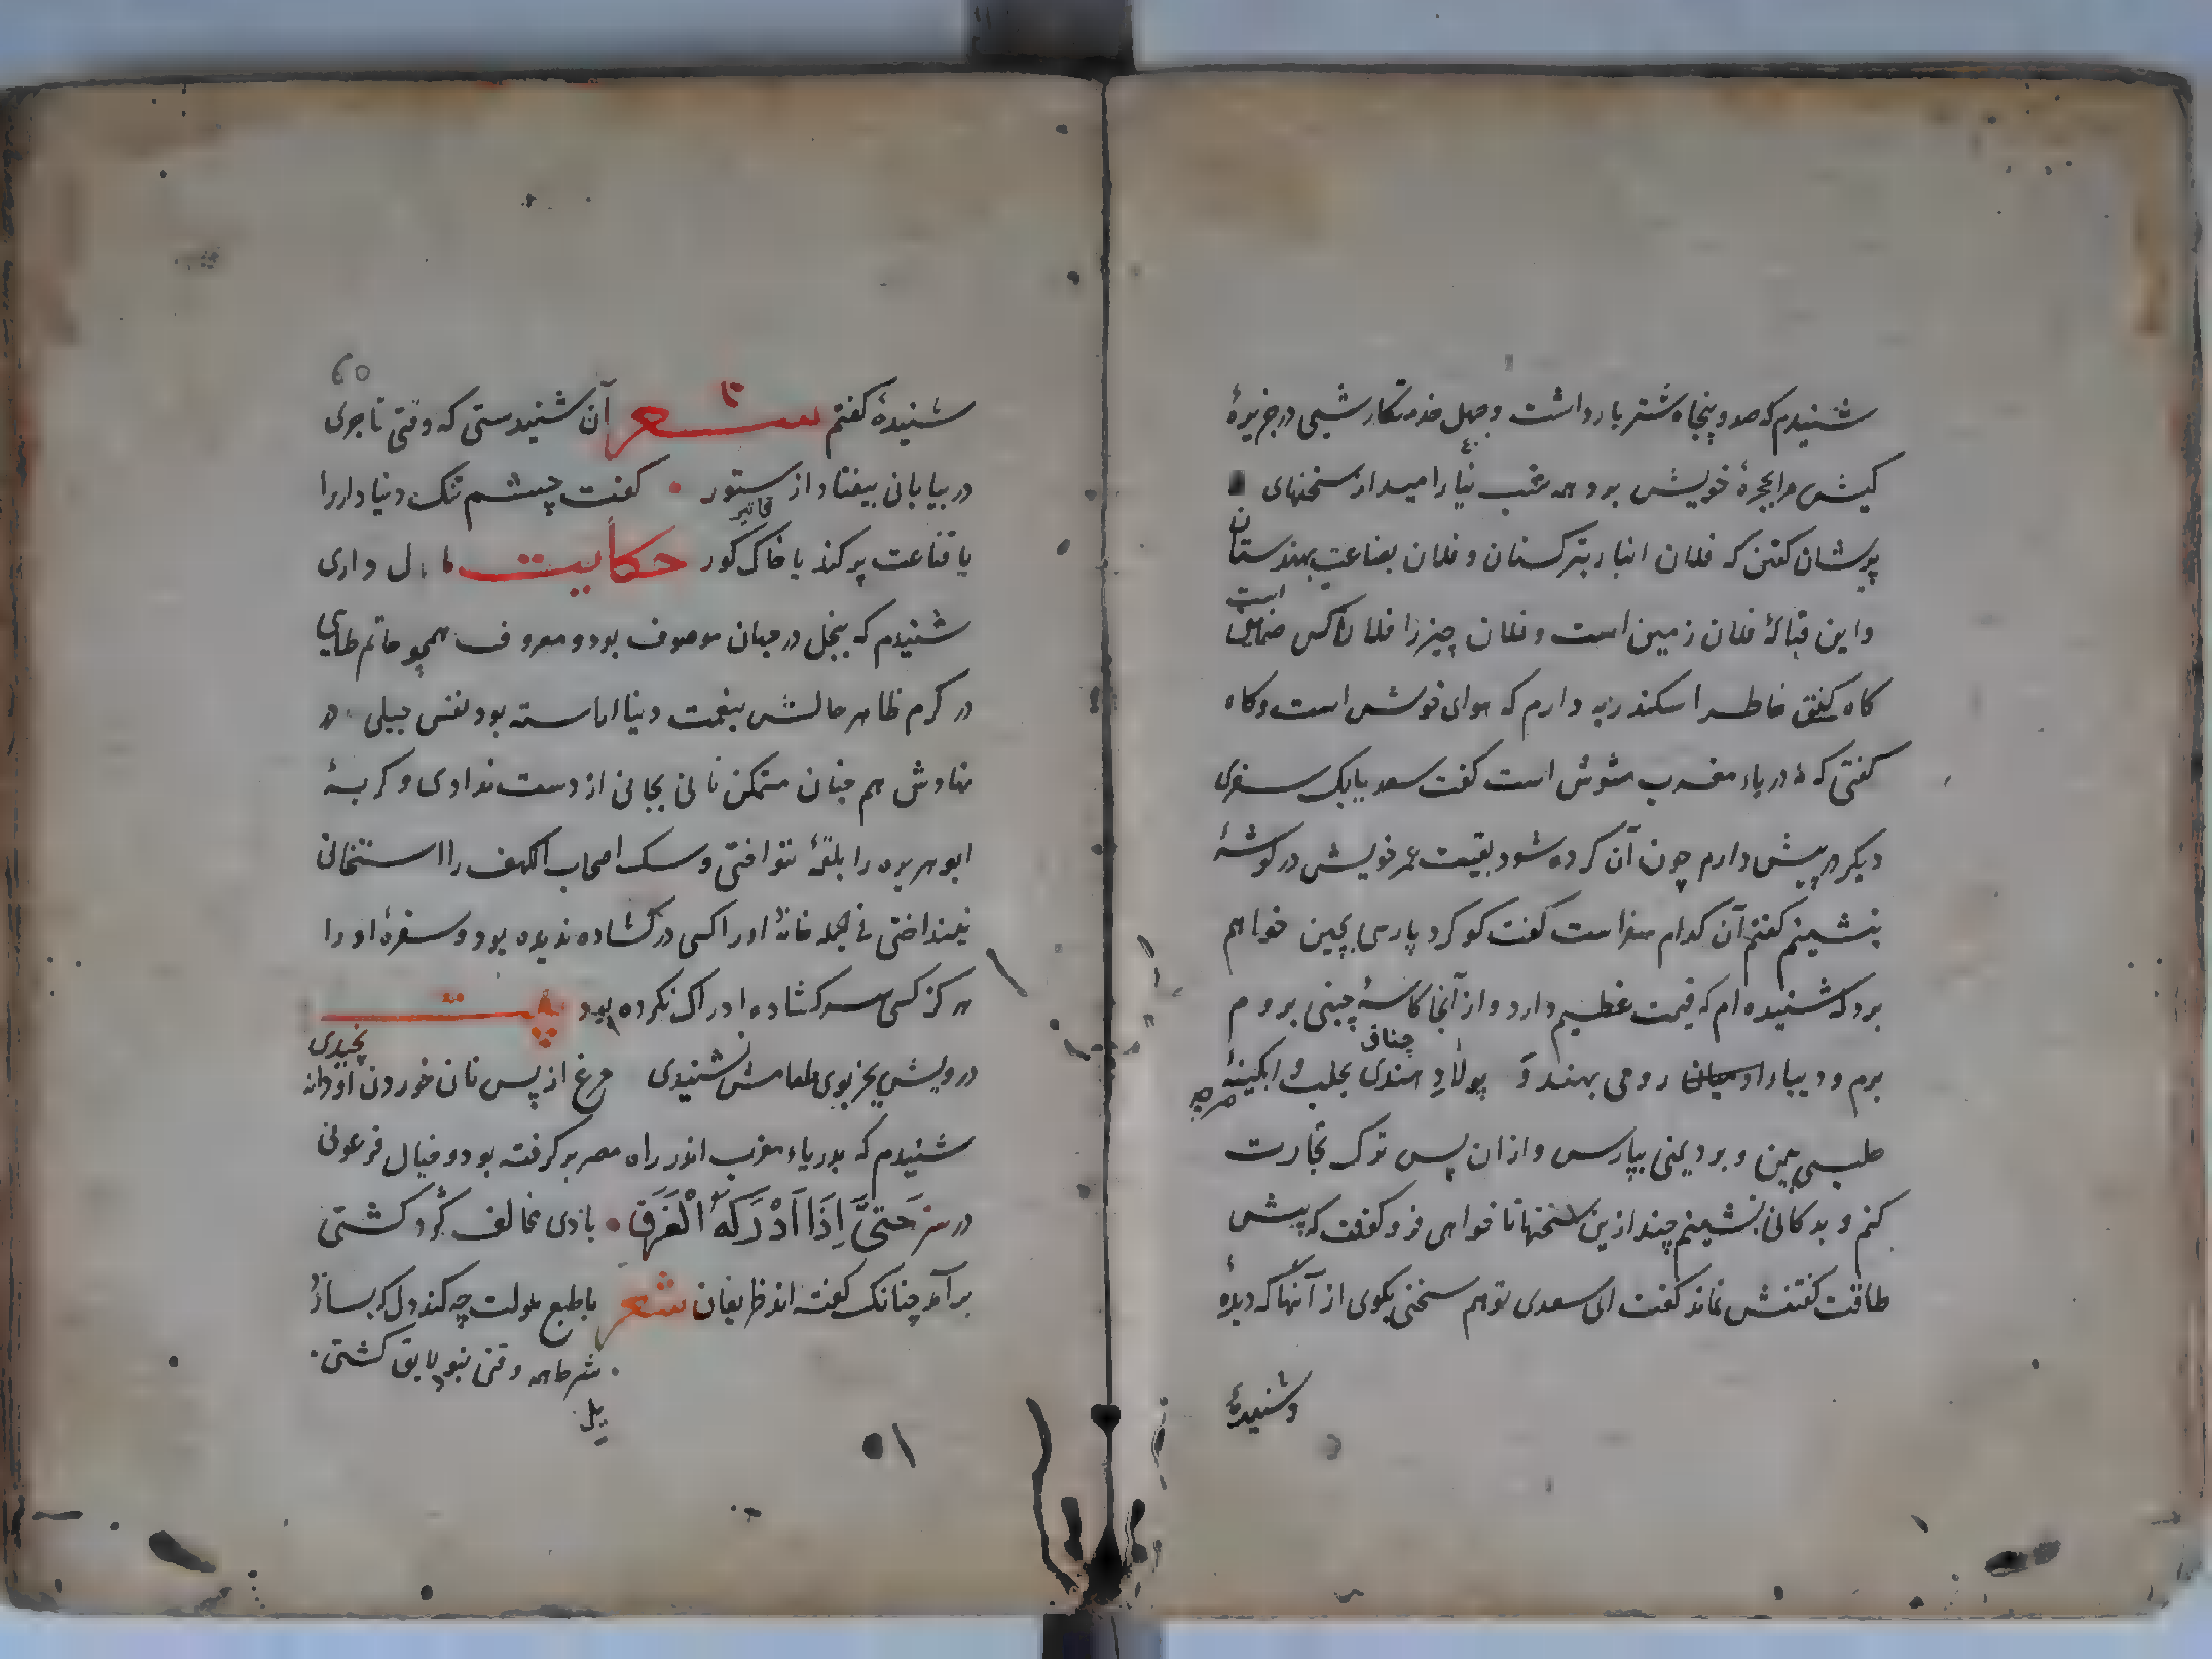 شنیدم که صد و پنجاه شتر بار داشت و چهل خدمتکار شبی در جزیرهٔ
کیش مرا بحجرهٔ خویش برد همه شب نیارامید از سخنهای
پریشان کفتن که فلان انبار بترکستان و فلان بضاعت بهندستان
و این قبالهٔ فلان زمین است و فلان چیز را فلان کس ضمان است
کاه کفتی خاطر اسکندریه دارم که هوای خوش است و کاه
کفتی که دریاء مغرب مشوش است کفت سعدیا یک سفری
دیکر در پیش دارم چون آن کرده شود بقیت عمر خویش در کوشهٔ
بنشینم کفتم آن کدام سفر است کفت کوکرد پارسی بچین خواهم
برد که شنیده ام که قیمت عظیم دارد و از آنجا کاسهٔ چینی بروم
چناق
برم و دیبارا رومی بهند و پولاد هندی بحلب و ابکینهٔ
حلبی بیمن و برد یمنی بپارس و از ان پس ترک تجارت
کنم و بدکانی بنشینم چند ازین سخنها تا خواهی فرو کفت که پیش
طاقت کفتنش نماند کفت ای سعدی تو هم سخنی بکوی از آنها که دیدهٔ
و شنیدهٔ
٦٥
شنیدهٔ کفتم شعر آن شنیدستی که وقتی تاجری
در بیابانی بیفتاد از ستور • کفت چشم تنک دنیادار را
یا قناعت پر کند یا خاک کور حکایت مال داری
شنیدم که ببخل در جهان موصوف بود و معروف همچو حاتم طایی
در کرم ظاهر حالش بنعمت دنیا اراسته بود نفس جبلی در
نهادش هم چنان متمکن نانی بجانی از دست ندادی و کربهٔ
ابو هریره را بلقمهٔ ننواختی و سک اصحاب الکهف را استخوانی
نینداختی فی الجمله خانهٔ او را کسی در کشاده ندیده بود و سفرهٔ او را
هرکز کسی سر کشاده ادراک نکرده بود بیت
درویش بجز بوی طعامش نشنیدی مرغ از پس نان خوردن او دانه
نچیدی
شنیدم که بدریاء مغرب اندر راه مصر بر کرفته بود و خیال فرعونی
در سر حَتَّى اِذَا اَدْرَكَهُ الْغَرَقُ • بادی مخالف کرد کشتی
بر آمد چنانک کفته اند ظریفان شعر با طبع ملولت چه کند دل که نسازد
• شرطه همه وقتی نبود لایق کشتی •
٥١